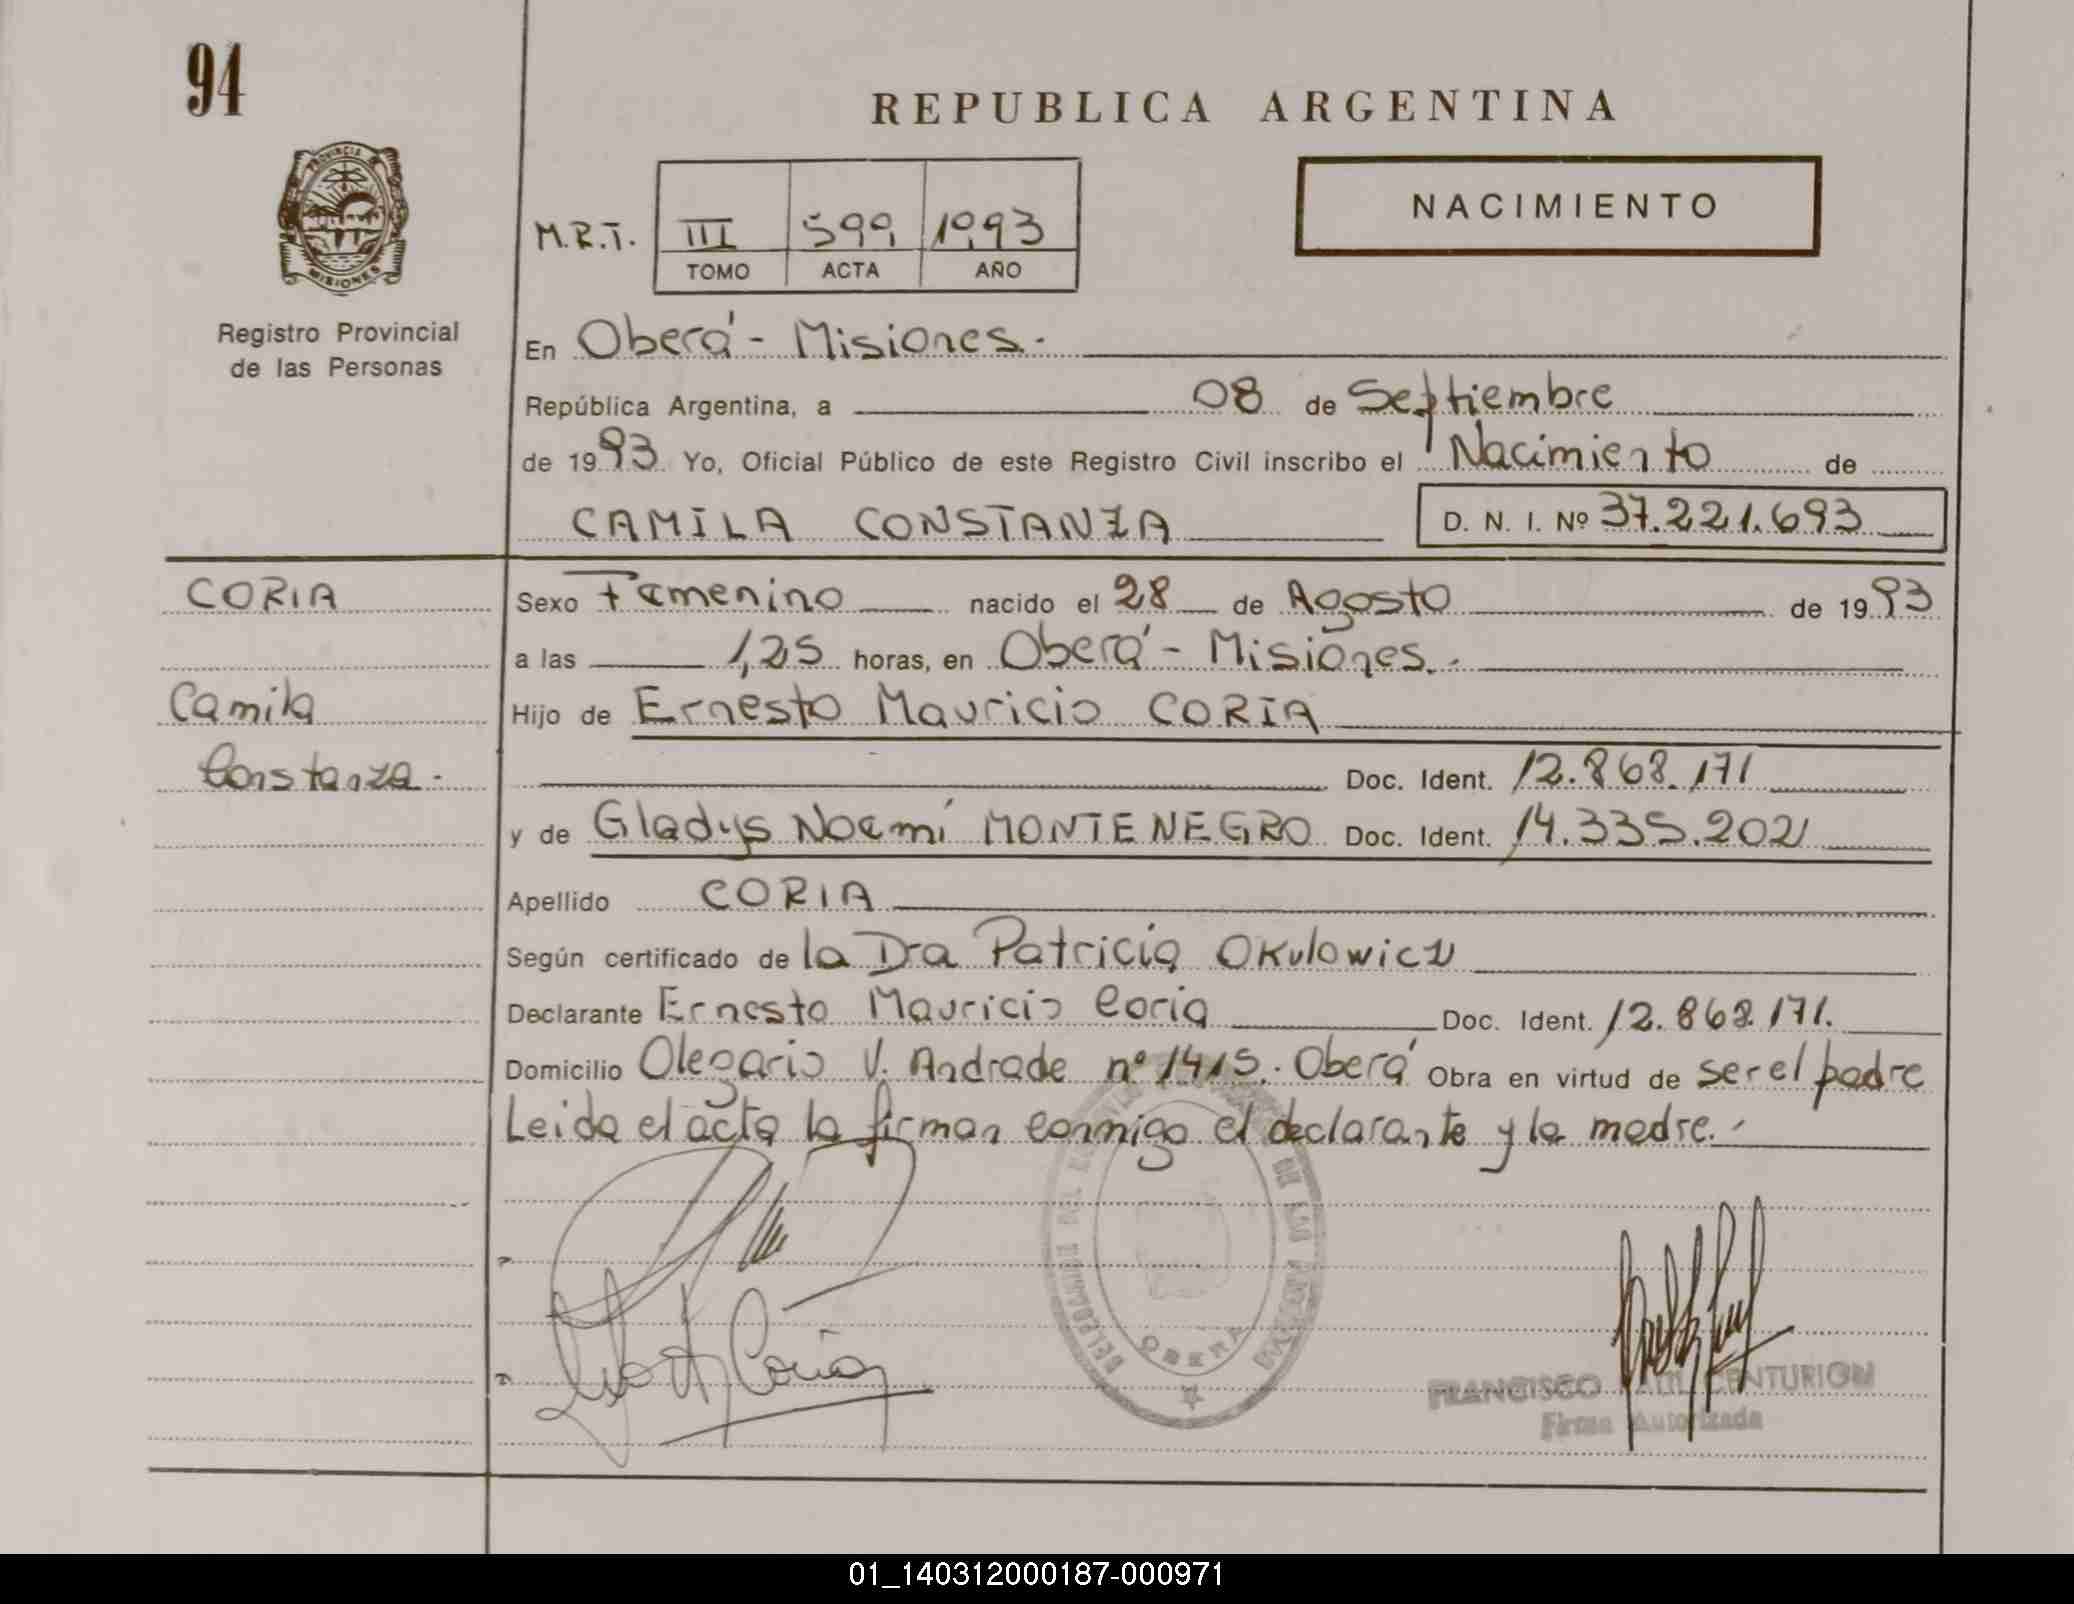 94
REPUBLICA ARGENTINA
PROVINCIA DE
MISIONES
NACIMIENTO
M.R.T. III 599 1993
TOMO ACTA AÑO
Registro Provincial
de las Personas
En Oberá - Misiones.
República Argentina, a 08 de Septiembre
de 1993 Yo, Oficial Público de este Registro Civil inscribo el Nacimiento de
CAMILA CONSTANZA D. N. I. Nº 37.221.693
CORIA
Camila
Constanza.
Sexo Femenino nacido el 28 de Agosto de 1993
a las 1,25 horas, en Oberá - Misiones.
Hijo de Ernesto Mauricio CORIA
Doc. Ident. 12.868.171
y de Gladys Noemí MONTENEGRO Doc. Ident. 14.335.202
Apellido CORIA
Según certificado de la Dra Patricia Okulowicz
Declarante Ernesto Mauricio Coria Doc. Ident. 12.868.171.
Domicilio Olegario V. Andrade nº 1415. Oberá Obra en virtud de ser el padre
Leida el acta la firman conmigo el declarante y la madre.
DE LAS PERSONAS
OBERA
FRANCISCO CENTURION
Firma Autorizada
01_140312000187-000971